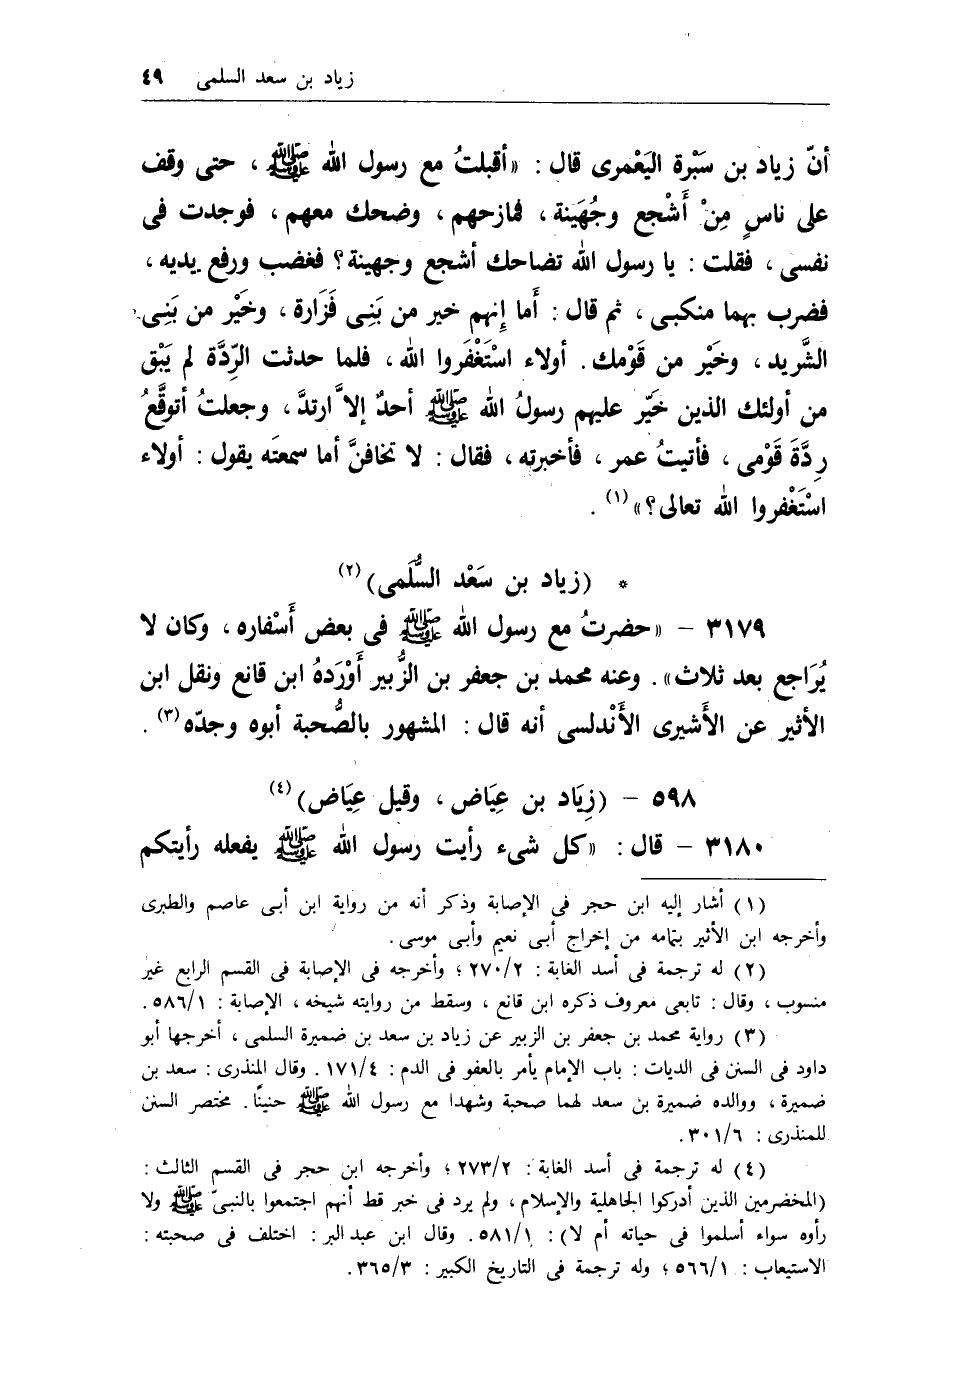 زياد بن سعد السلمى ٤٩
أنّ زياد بن سَبْرة اليَعْمرى قال : «أقبلتُ مع رسول الله ﷺ ، حتى وقف
على ناسٍ مِنْ أَشْجع وجُهَينة ، فمازحهم ، وضحك معهم ، فوجدت فى
نفسى ، فقلت : يا رسول الله تضاحك أشجع وجهينة ؟ فغضب ورفع يديه ،
فضرب بهما منكبى ، ثم قال : أَما إِنهم خير من بَنِى فَزَارة ، وخَيْر من بَنِى
الشَّريد ، وخَيْر من قَوْمك . أولاء اسْتَغْفَروا الله ، فلما حدثت الرِّدَّة لم يَبْق
من أولئك الذين خَيّر عليهم رسولُ الله ﷺ أحدٌ إلاَّ ارتدَّ ، وجعلتُ أتوقَّعُ
رِدَّةَ قَوْمى ، فأتيتُ عمر ، فأخبرته ، فقال : لا تخافنَّ أما سمعتَه يقول : أولاء
اسْتَغْفروا الله تعالى ؟» (١) .
* (زياد بن سَعْد السُّلَمى) (٢)
٣١٧٩ – «حضرتُ مع رسول الله ﷺ فى بعض أَسْفاره ، وكان لا
يُرَاجع بعد ثلاث» . وعنه محمد بن جعفر بن الزُّبير أَوْرَدهُ ابن قانع ونقل ابن
الأثير عن الأَشيرى الأَنْدلسى أنه قال : المشهور بالصُّحبة أبوه وجدّه (٣) .
٥٩٨ – (زِيَاد بن عِيَاض ، وقيل عِيَاض) (٤)
٣١٨٠ – قال : «كل شىء رأيت رسول الله ﷺ يفعله رأيتكم
(١) أشار إليه ابن حجر فى الإصابة وذكر أنه من رواية ابن أبى عاصم والطبرى
وأخرجه ابن الأثير بتمامه من إخراج أبى نعيم وأبى موسى .
(٢) له ترجمة فى أسد الغابة : ٢/ ٢٧٠ ؛ وأخرجه فى الإصابة فى القسم الرابع غير
منسوب ، وقال : تابعى معروف ذكره ابن قانع ، وسقط من روايته شيخه ، الإصابة : ١/ ٥٨٦ .
(٣) رواية محمد بن جعفر بن الزبير عن زياد بن سعد بن ضميرة السلمى ، أخرجها أبو
داود فى السنن فى الديات : باب الإمام يأمر بالعفو فى الدم : ٤/ ١٧١ . وقال المنذرى : سعد بن
ضميرة ، ووالده ضميرة بن سعد لهما صحبة وشهدا مع رسول الله ﷺ حنينًا . مختصر السنن
للمنذرى : ٦/ ٣٠١ .
(٤) له ترجمة فى أسد الغابة : ٢/ ٢٧٣ ؛ وأخرجه ابن حجر فى القسم الثالث :
(المخضرمين الذين أدركوا الجاهلية والإسلام ، ولم يرد فى خبر قط أنهم اجتمعوا بالنبىّ ﷺ ولا
رأوه سواء أسلموا فى حياته أم لا) : ١/ ٥٨١ . وقال ابن عبد البر : اختلف فى صحبته :
الاستيعاب : ١/ ٥٦٦ ؛ وله ترجمة فى التاريخ الكبير : ٣/ ٣٦٥ .